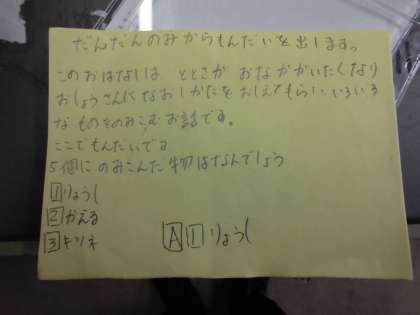 だんだんのみからもんだいを出します。
このおはなしは ととさが おなががいたくなり
おしょうさんになおしかたをおしえてもらい、いろいろ
なものをのみこむお話です。
ここでもんだいです
5個にのみこんだ物はなんでしょう
1 りょうし
2 かえる
3 キツネ
A 1 りょうし